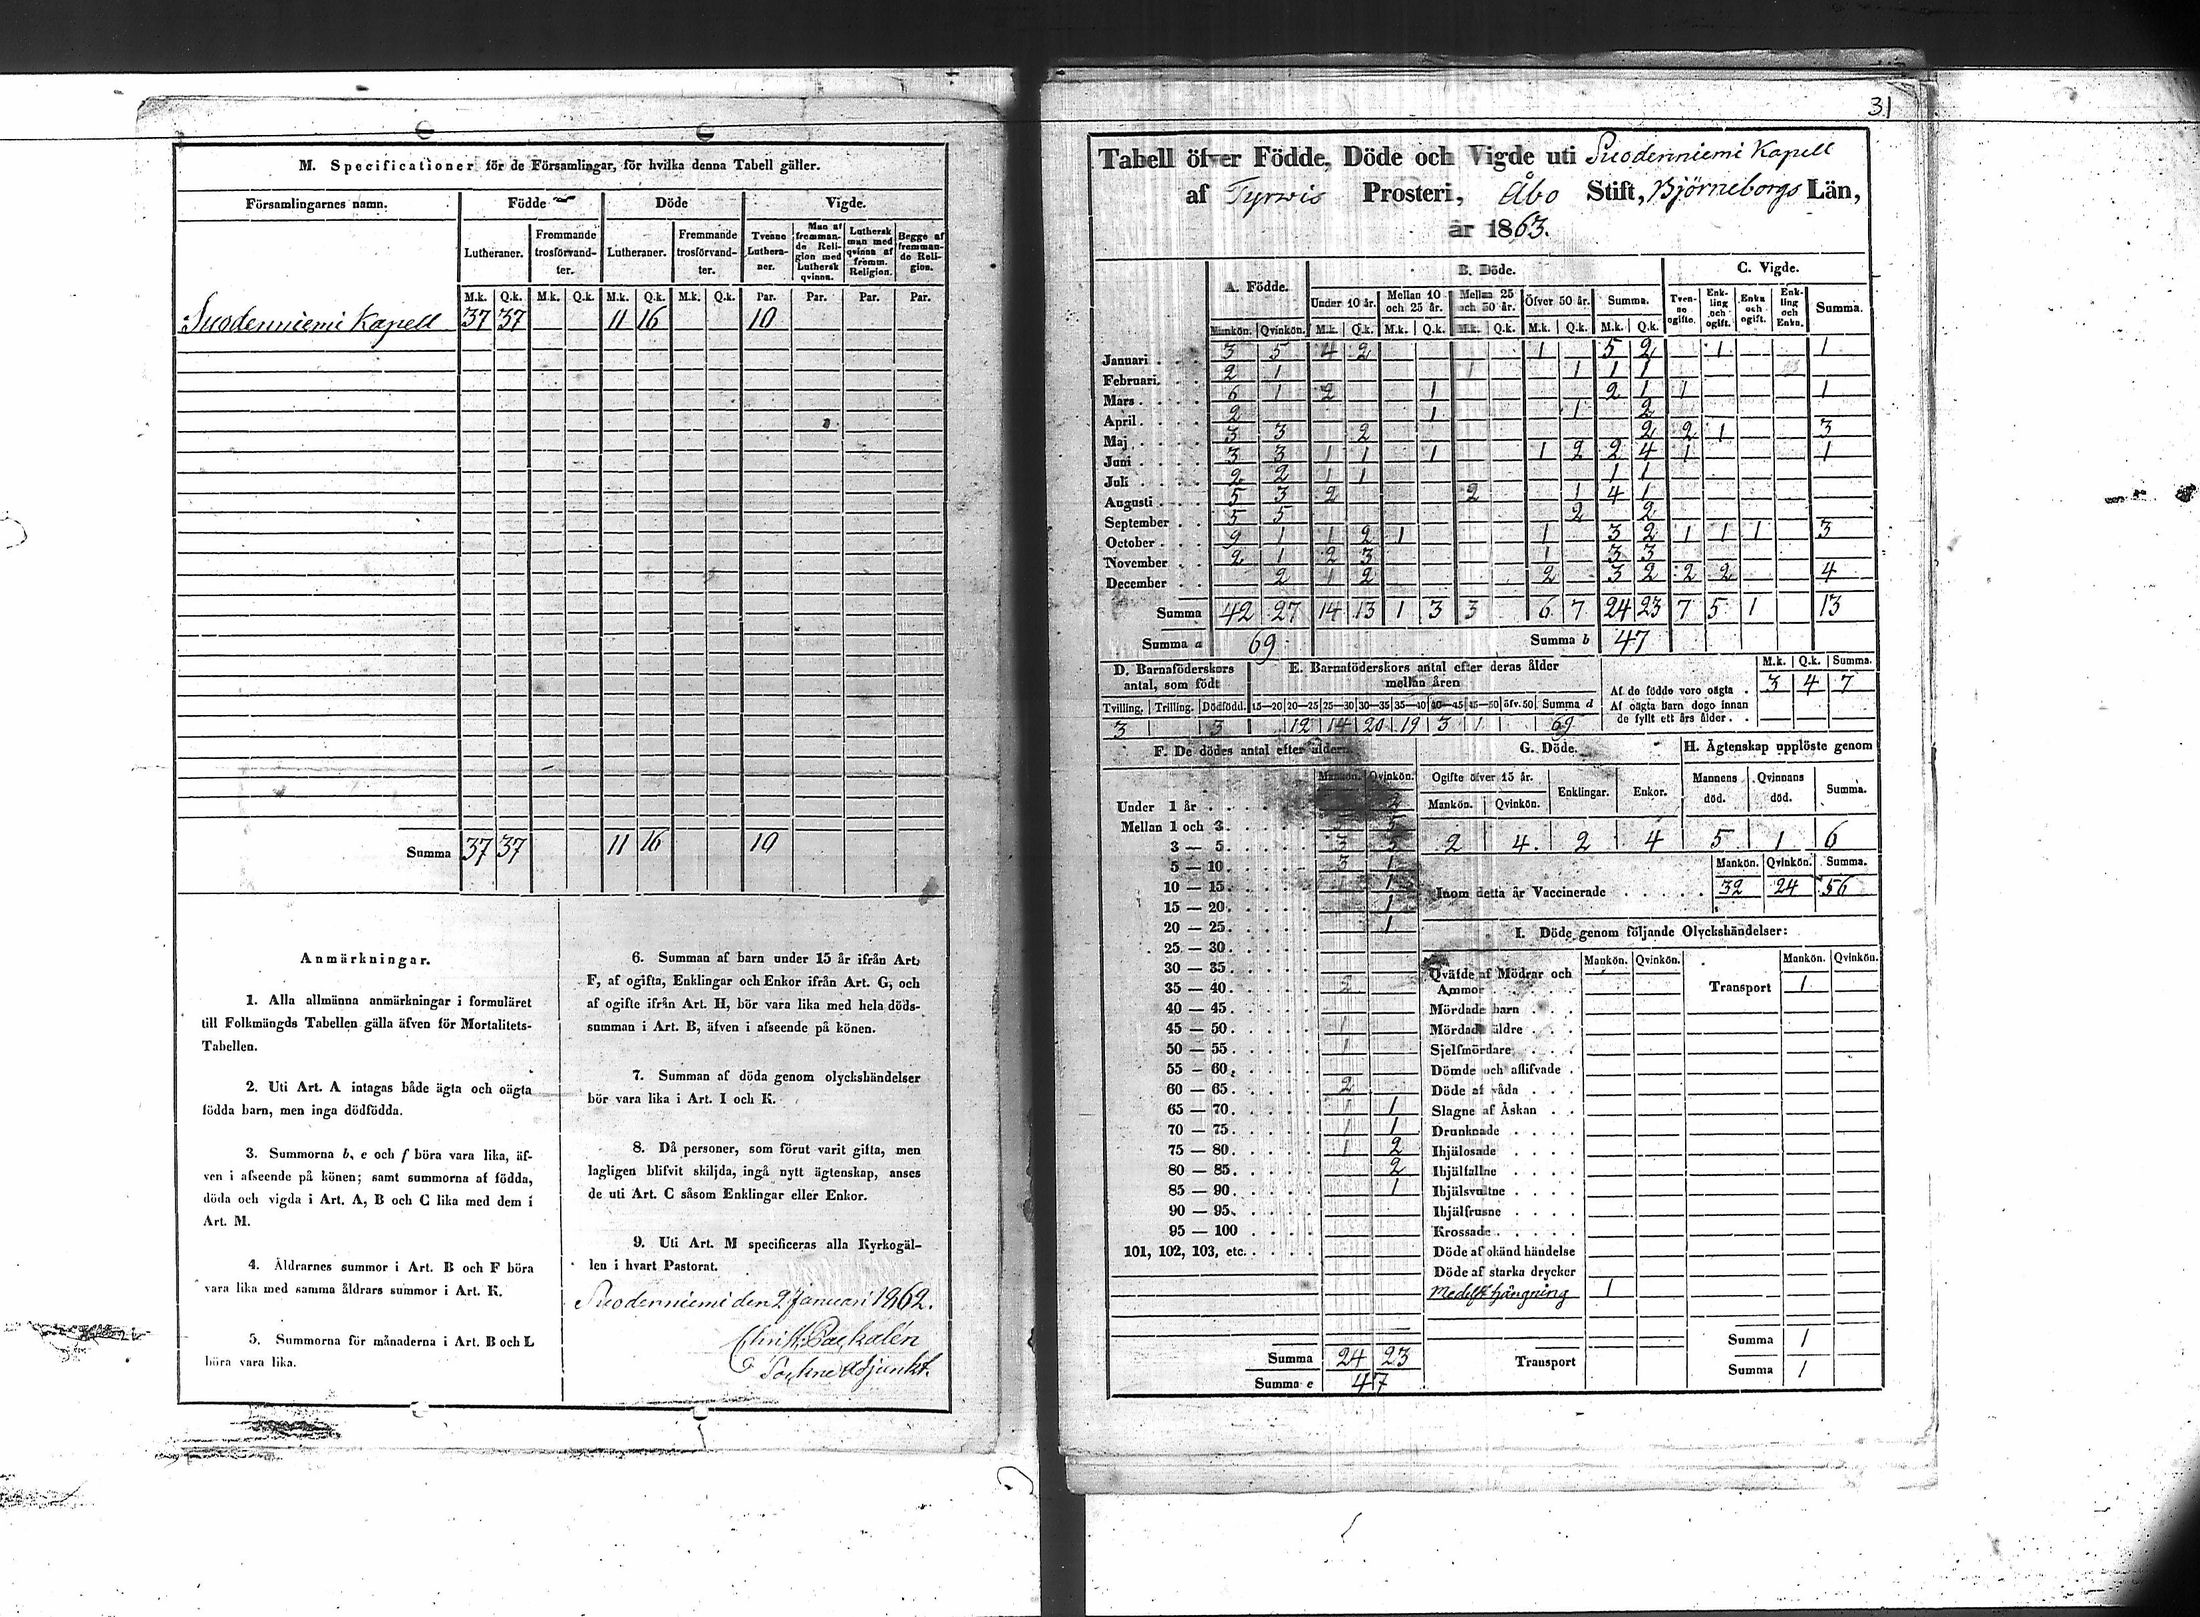 M. Specificationer för de Församlingar, för hvilka denna Tabell gäller.
Församlingarnes namn. Födde Döde Vigde.
Lutheraner. Fremmande trosförvandter. Lutheraner. Fremmande trosförvandter. Tvenne Lutheraner. Man af fremmande Religion med Luthersk qvinna. Luthersk man med qvinna af fremm. Religion. Begge af fremmande Religion.
M.k. Q.k. M.k. Q.k. M.k. Q.k. M.k. Q.k. Par. Par. Par. Par.
Suodenniemi Kapell 37 37 11 16 10
Summa 37 37 11 16 10
Anmärkningar.
1. Alla allmänna anmärkningar i formuläret
till Folkmängds Tabellen gälla äfven för Mortalitets-
Tabellen.
2. Uti Art. A intagas både ägta och oägta
födda barn, men inga dödfödda.
3. Summorna b, e och f böra vara lika, äf-
ven i afseende på könen; samt summorna af födda,
döda och vigda i Art. A, B och C lika med dem i
Art. M.
4. Åldrarnes summor i Art. B och F böra
vara lika med samma åldrars summor i Art. K.
5. Summorna för månaderna i Art. B och L
böra vara lika.
6. Summan af barn under 15 år ifrån Art.
F, af ogifta, Enklingar och Enkor ifrån Art. G, och
af ogifte ifrån Art. H, bör vara lika med hela döds-
summan i Art. B, äfven i afseende på könen.
7. Summan af döda genom olyckshändelser
bör vara lika i Art. I och K.
8. Då personer, som förut varit gifta, men
lagligen blifvit skiljda, ingå nytt ägtenskap, anses
de uti Art. C såsom Enklingar eller Enkor.
9. Uti Art. M specificeras alla Kyrkogäl-
len i hvart Pastorat.
Suodenniemi den 2 Januari 1862.
31
Tabell öfver Födde, Döde och Vigde uti Suodenniemi Kapell
af Tyrwis Prosteri, Åbo Stift, Björneborgs Län,
år 1863.
A. Födde. B. Döde. C. Vigde.
Under 10 år. Mellan 10 och 25 år. Mellan 25 och 50 år. Öfver 50 år. Summa. Tvenne ogifte. Enkling och ogift. Enka och ogift. Enkling och Enka. Summa.
Mankön. Qvinkön. M.k. Q.k. M.k. Q.k. M.k. Q.k. M.k. Q.k. M.k. Q.k.
Januari 3 5 4 2 1 5 2 1 1
Februari 2 1 1 1 1 1
Mars 6 1 2 1 2 1 1 1
April 2 1 1 2
Maj 3 3 2 2 2 1 3
Juni 3 3 1 1 1 1 2 2 4 1 1
Juli 2 2 1 1 1 1
Augusti 5 3 2 2 1 4 1
September 5 5 2 2
October 9 1 1 2 1 1 3 2 1 1 1 3
November 2 1 2 3 1 3 3
December 2 1 2 2 3 2 2 2 4
Summa 42 27 14 13 1 3 3 6 7 24 23 7 5 1 13
Summa a 69 Summa b 47
D. Barnaföderskors antal, som födt
Tvilling. Trilling. Dödfödd.
3 3
E. Barnaföderskors antal efter deras ålder mellan åren
15—20 20—25 25—30 30—35 35—40 40—45 45—50 öfv. 50 Summa d
12 14 20 19 3 1 69
M.k. Q.k. Summa.
Af de födde voro oägta 3 4 7
Af oägta barn dogo innan
de fyllt ett års ålder
F. De dödes antal efter åldern.
Mankön. Qvinkön.
Under 1 år 2
Mellan 1 och 3 5
3 — 5 3 5
5 — 10 3 1
10 — 15 1 1
15 — 20 1
20 — 25 1
25 — 30
30 — 35
35 — 40 2
40 — 45
45 — 50 1
50 — 55 1
55 — 60
60 — 65 2
65 — 70 1 1
70 — 75 1 1
75 — 80 1 2
80 — 85 2
85 — 90 1
90 — 95
95 — 100
101, 102, 103, etc.
Summa 24 23
Summa e 47
G. Döde.
Ogifte öfver 15 år. Enklingar. Enkor.
Mankön. Qvinkön.
2 4 2 4
H. Ägtenskap upplöste genom
Mannens död. Qvinnans död. Summa.
5 1 6
Mankön. Qvinkön. Summa.
Inom detta år Vaccinerade 32 24 56
I. Döde genom följande Olyckshändelser:
Mankön. Qvinkön. Mankön. Qvinkön.
Qväfde af Mödrar och
Ammor Transport 1
Mördade barn
Mördade äldre
Sjelfmördare
Dömde och aflifvade
Döde af våda
Slagne af Åskan
Drunknade
Ihjälosade
Ihjälfallne
Ihjälsvultne
Ihjälfrusne
Krossade
Döde af okänd händelse
Döde af starka drycker
1
Summa 1
Transport Summa 1